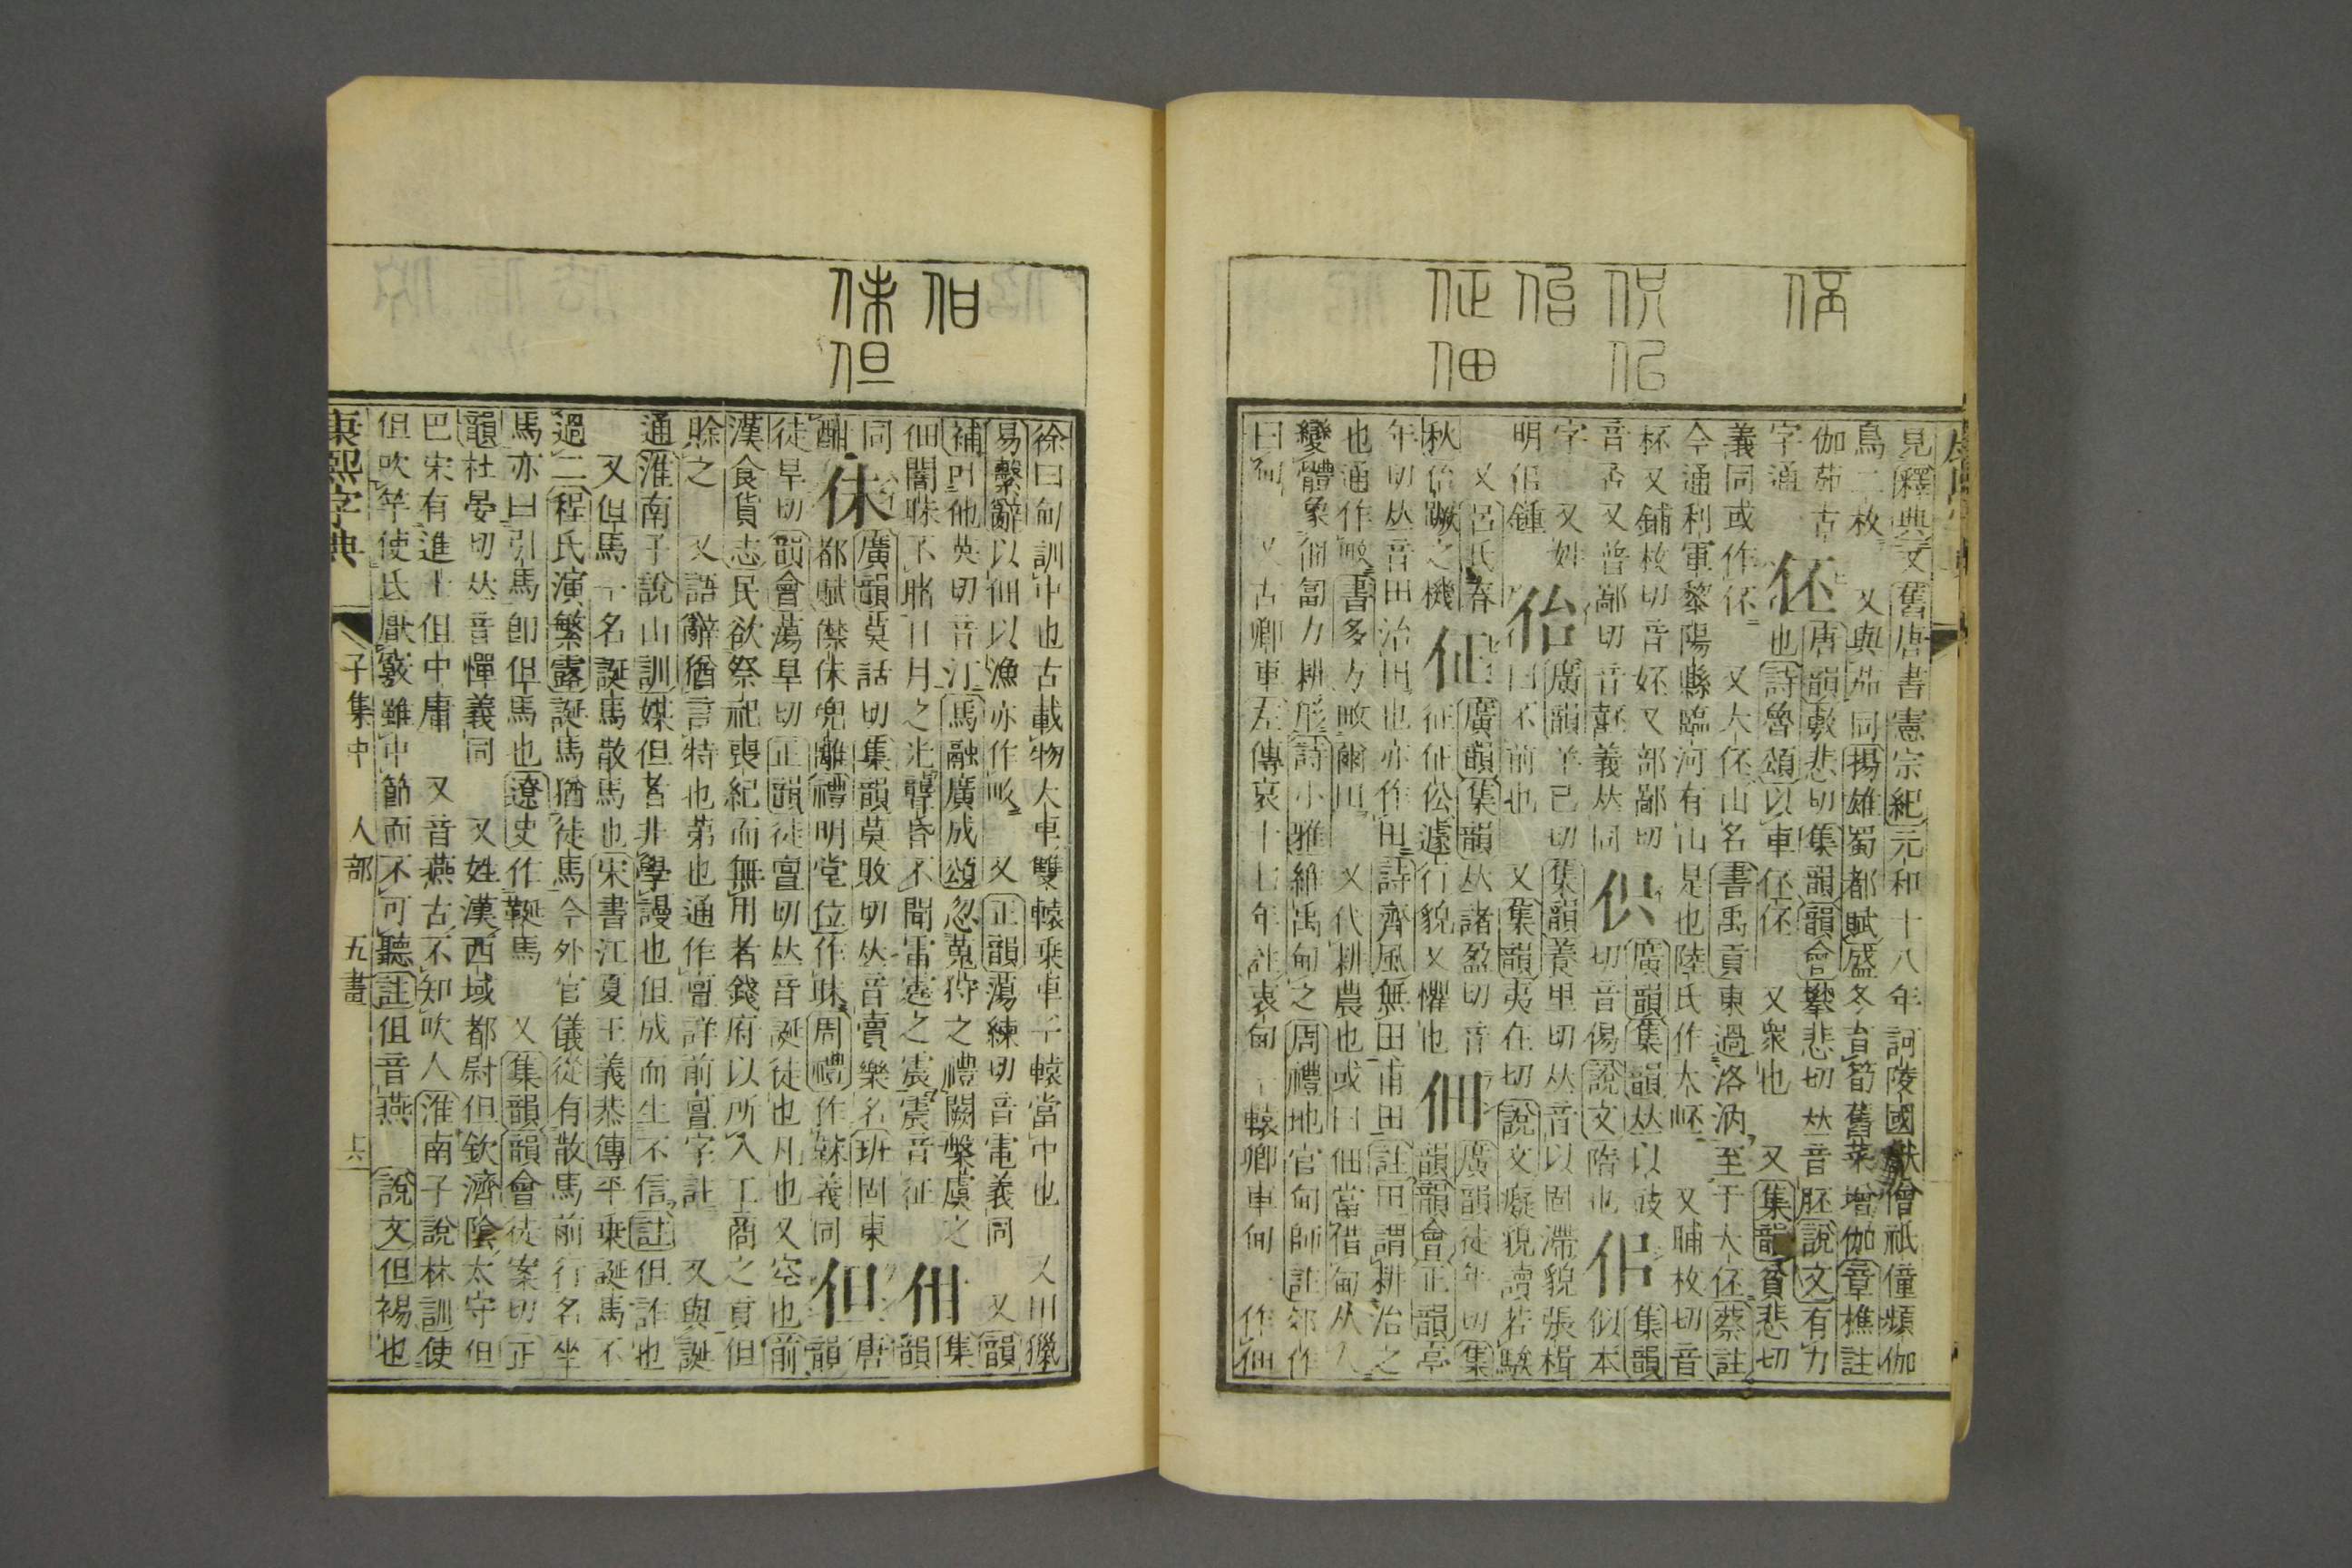 㑨
伾
伿 佀
佁
佂 佃
見釋典又舊唐書憲宗紀元和十八年訶陵國獻僧祇僮頻伽
鳥二枚 又與茄同揚雄蜀都賦盛冬育筍舊菜增伽章樵註
伽茄古
字通
伾
唐韻敷悲切集韻韻會攀悲切𠀤音胚說文有力
也詩魯頌以車伾伾 又衆也 又集韻貧悲切
義同或作伓 又大伾山名書禹貢東過洛汭至于大伾蔡註
今通利軍黎陽縣臨河有山是也陸氏作大岯 又晡枚切音
杯又鋪枚切音妚又部鄙切
音否又普鄙切音嚭義𠀤同
伿
廣韻集韻𠀤以豉
切音傷說文隋也
佀
集韻
似本
字 又姓
明佀鍾
佁
廣韻羊已切集韻養里切𠀤音以固滯貌張楫
曰不前也 又集韻夷在切說文癡貌讀若騃
又呂氏春
秋佁蹶之機
佂
廣韻集韻𠀤諸盈切音征
佂佂伀遽行貌又懼也
佃
廣韻徒年切集
韻韻會正韻亭
年切𠀤音田治田也亦作田詩齊風無田甫田註田謂耕治之
也通作畋書多方畋爾田 又代耕農也或曰佃當借甸从人
變體象佃匐力耕形詩小雅維禹甸之周禮地官甸師註郊作
曰甸 又古卿車左傳哀十七年註衷甸一轅卿車甸一作佃
佄
佅 但
徐曰甸訓中也古載物大車雙轅乗車一轅當中也 又田獵
易繫辭以佃以漁亦作畋 又正韻蕩練切音電義同 又韻
補叶他英切音汀馬融廣成頌忽蒐狩之禮闕槃虞之
佃闇昧不睹日月之光聾昏不聞雷霆之震震音征
佄
集
韻
同
酣
佅
廣韻莫話切集韻莫敗切𠀤音賣樂名班固東
都賦僸佅兜離禮明堂位作昧周禮作韎義同
但
唐
韻
徒旱切韻會蕩旱切正韻徒亶切𠀤音誕徒也凡也又空也前
漢食貨志民欲祭祀喪紀而無用者錢府以所入工商之貢但
賖之 又語辭猶言特也第也通作亶詳前亶字註 又與誕
通淮南子說山訓媒但者非學謾也但成而生不信註但詐也
又但馬一名誕馬散馬也宋書江夏王義恭傳平乗誕馬不
過二程氏演繁露誕馬猶徒馬今外官儀從有散馬前行名坐
馬亦曰引馬卽但馬也遼史作𩍅馬 又集韻韻會徒案切正
韻杜晏切𠀤音憚義同 又姓漢西域都尉但欽濟陰太守但
巴宋有進士但中庸 又音燕古不知吹人淮南子說林訓使
但吹竽使氐厭竅雖中節而不可聽註但音燕 說文但裼也
康熙字典 子集中 人部 五畫